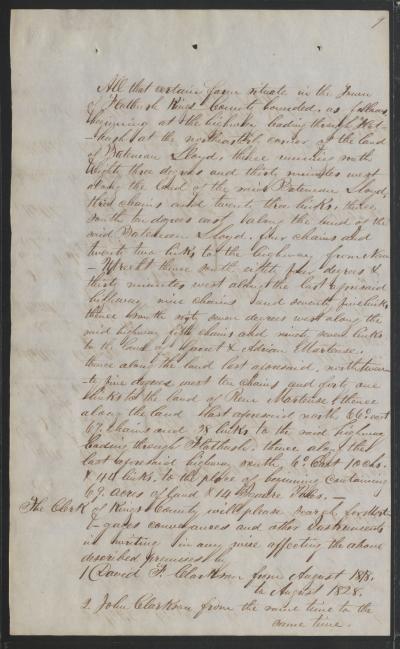 1
All that certain farm situate in the Town
of Flatbush Kings County bounded, as follows
beginning at the highway leading through Flat-
-bush at the northeasterly corner of the land
of Bateman Lloyd, thence running north
Eighty three degrees and thirty minutes west
along the land of the said Bateman Lloyd,
chains and twenty three links, thence
south ten degrees east along the land of the
said Bateman Lloyd four chains and
twenty two links to the highway from New
-Utrecht thence south eighty four degrees &
thirty minutes west along the last aforesaid
highway nine chains and seventy five links
thence south sixty seven degrees west along the
said highway chains and ninety seven links
to the land of Garret & Adrian Martense.
thence along the land last aforesaid, north twen-
-ty five degrees west ten chains and forty one
links to the land of Rem Martense & thence
along the land last aforesaid north 66° east
67. chains and 98 links to the said highway
leading through Flatbush. thence along the
last aforesaid highway south 6° East 10 chs.
& 44 links. to the place of beginning containing
69. acres of land & 14 square Poles. —
The Clerk of Kings County will please search for Mort-
-gages conveyances and other Instruments
in writing in any wise affecting the above
described premises by
1 David F. Clarkson from August 1818.
to August 1828.
2. John Clarkson from the same time to the
same time.